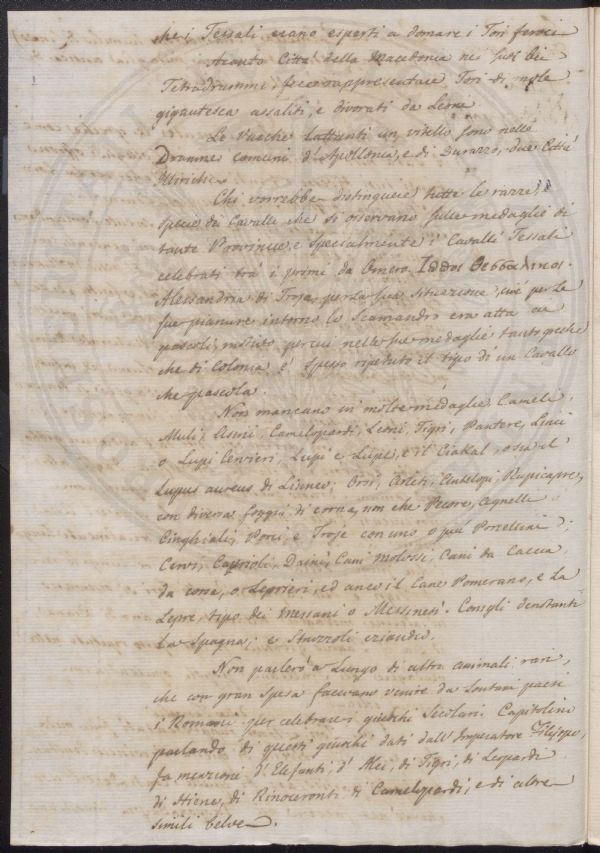 che i Tessali erano esperti a domare i Tori feroci
Acanto Città della Macedonia ne' suoi bei
Tetradrammi, fece rappresentare Tori di mole
gigantesca assaliti, e divorati da Leone
Le Vacche lattanti un vitello sono nelle
Dramme comuni d'Apollonia, e di Durazzo, due Città
Illiriche.
Chi vorrebbe distinguere tutte le razze,
specie dei Cavalli che si osservano sulle medaglie di
tante Provincie, e specialmente i Cavalli Tessali
celebrati trà i primi da Omero
Alessandria di Troja per la sua situazione, cioè per le
sue pianure intorno lo Scamandro era atta ai
pascoli, motivo per cui nelle sue medaglie tanto greche
che di Colonia è spesso ripetuto il tipo di un Cavallo
che pascola.
Non mancano in molte medaglie Cameli,
Muli, Asini, Camelopardi, Leoni, Tigri, Pantere, Linci
o Lupi Cervieri, Lupi e Lupe, e il Ciakal, o sia il
Lupus aureus di Linneo; Orsi, Arieti, Antelopi, Rupicapre,
con diverse foggie di corna, non che Pecore, Agnelle
Cinghiali, Porci, e Troje con uno, o più Porcellini;
Cervi, Caprioli, Daini, Cani Molossi, Cani da Caccia
da corsa, o Leprieri, ed anco il Cane Pomerano, e la
Lepre, tipo dei Messani o Messinesi. Conigli denotanti
la Spagna; e Struzzoli eziandio.
Non parlerò a lungo di altri animali rari,
che con gran spesa facevano venire da lontani paesi
i Romani per celebrare i giuochi Secolari. Capitolino
parlando di questi giuochi dati dall'Imperatore Filippo,
fa menzione d'Elefanti, d'Alci, di Tigri, di Leopardi
di Hiene, di Rinoceronti, di Camelopardi; e di altre
simili belve.